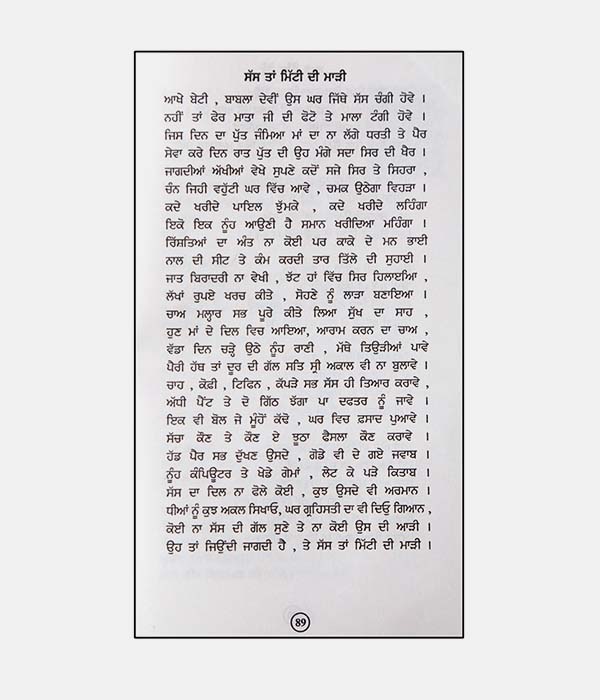 ਸੱਸ ਤਾਂ ਮਿੱਟੀ ਦੀ ਮਾੜੀ
ਆਖੇ ਬੇਟੀ , ਬਾਬਲਾ ਦੇਵੀਂ ਉਸ ਘਰ ਜਿੱਥੇ ਸੱਸ ਚੰਗੀ ਹੋਵੇ ।
ਨਹੀਂ ਤਾਂ ਫੇਰ ਮਾਤਾ ਜੀ ਦੀ ਫੋਟੋ ਤੇ ਮਾਲਾ ਟੰਗੀ ਹੋਵੇ ।
ਜਿਸ ਦਿਨ ਦਾ ਪੁੱਤ ਜੰਮਿਆ ਮਾਂ ਦਾ ਨਾ ਲੱਗੇ ਧਰਤੀ ਤੇ ਪੈਰ
ਸੇਵਾ ਕਰੇ ਦਿਨ ਰਾਤ ਪੁੱਤ ਦੀ ਉਹ ਮੰਗੇ ਸਦਾ ਸਿਰ ਦੀ ਖੈਰ ।
ਜਾਗਦੀਆਂ ਅੱਖੀਆਂ ਵੇਖੇ ਸੁਪਣੇ ਕਦੋਂ ਸਜੇ ਸਿਰ ਤੇ ਸਿਹਰਾ ,
ਚੰਨ ਜਿਹੀ ਵਹੁੱਟੀ ਘਰ ਵਿੱਚ ਆਵੇ , ਚਮਕ ਉਠੇਗਾ ਵਿਹੜਾ ।
ਕਦੇ ਖਰੀਦੇ ਪਾਇਲ ਝੁੱਮਕੇ , ਕਦੇ ਖਰੀਦੇ ਲਹਿੰਗਾ
ਇਕੋ ਇਕ ਨੂੰਹ ਆਉਣੀ ਹੈ ਸਮਾਨ ਖਰੀਦਿਆ ਮਹਿੰਗਾ ।
ਰਿੱਸ਼ਤਿਆਂ ਦਾ ਅੰਤ ਨਾ ਕੋਈ ਪਰ ਕਾਕੇ ਦੇ ਮਨ ਭਾਈ
ਨਾਲ ਦੀ ਸੀਟ ਤੇ ਕੰਮ ਕਰਦੀ ਤਾਰ ਤਿੱਲੇ ਦੀ ਸੁਹਾਈ ।
ਜਾਤ ਬਿਰਾਦਰੀ ਨਾ ਵੇਖੀ , ਝੱਟ ਹਾਂ ਵਿੱਚ ਸਿਰ ਹਿਲਾਇਆ ,
ਲੱਖਾਂ ਰੁਪਏ ਖਰਚ ਕੀਤੇ , ਸੋਹਣੇ ਨੂੰ ਲਾੜਾ ਬਣਾਇਆ ।
ਚਾਅ ਮਲ੍ਹਾਰ ਸਭ ਪੂਰੇ ਕੀਤੇ ਲਿਆ ਸੁੱਖ ਦਾ ਸਾਹ ,
ਹੁਣ ਮਾਂ ਦੇ ਦਿਲ ਵਿਚ ਆਇਆ, ਆਰਾਮ ਕਰਨ ਦਾ ਚਾਅ ,
ਵੱਡਾ ਦਿਨ ਚੜ੍ਹੇ ਉਠੇ ਨੂੰਹ ਰਾਣੀ , ਮੱਥੇ ਤਿਉੜੀਆਂ ਪਾਵੇ
ਪੈਰੀ ਹੱਥ ਤਾਂ ਦੂਰ ਦੀ ਗੱਲ ਸਤਿ ਸ੍ਰੀ ਅਕਾਲ ਵੀ ਨਾ ਬੁਲਾਵੇ ।
ਚਾਹ , ਕੋਫੀ , ਟਿਫਿਨ , ਕੱਪੜੇ ਸਭ ਸੱਸ ਹੀ ਤਿਆਰ ਕਰਾਵੇ ,
ਅੱਧੀ ਪੈਂਟ ਤੇ ਦੋ ਗਿੱਠ ਝੱਗਾ ਪਾ ਦਫਤਰ ਨੂੰ ਜਾਵੇ ।
ਇਕ ਵੀ ਬੋਲ ਜੇ ਮੂੰਹੋਂ ਕੱਢੋ , ਘਰ ਵਿਚ ਫ਼ਸਾਦ ਪੁਆਵੇ ।
ਸੱਚਾ ਕੌਣ ਤੇ ਕੌਣ ਏ ਝੂਠਾ ਫੈਸਲਾ ਕੌਣ ਕਰਾਵੇ ।
ਹੱਡ ਪੈਰ ਸਭ ਦੁੱਖਣ ਉਸਦੇ , ਗੋਡੇ ਵੀ ਦੇ ਗਏ ਜਵਾਬ ।
ਨੂੰਹ ਕੰਪਿਊਟਰ ਤੇ ਖੇਡੇ ਗੇਮਾਂ , ਲੇਟ ਕੇ ਪੜੇ ਕਿਤਾਬ ।
ਸੱਸ ਦਾ ਦਿਲ ਨਾ ਫੋਲੇ ਕੋਈ , ਕੁਝ ਉਸਦੇ ਵੀ ਅਰਮਾਨ ।
ਧੀਆਂ ਨੂੰ ਕੁਝ ਅਕਲ ਸਿਖਾਓ, ਘਰ ਗ੍ਰਹਿਸਤੀ ਦਾ ਵੀ ਦਿਓ ਗਿਆਨ ,
ਕੋਈ ਨਾ ਸੱਸ ਦੀ ਗੱਲ ਸੁਣੇ ਤੇ ਨਾ ਕੋਈ ਉਸ ਦੀ ਆੜੀ ।
ਉਹ ਤਾਂ ਜਿਉਂਦੀ ਜਾਗਦੀ ਹੈ , ਤੇ ਸੱਸ ਤਾਂ ਮਿੱਟੀ ਦੀ ਮਾੜੀ ।
89